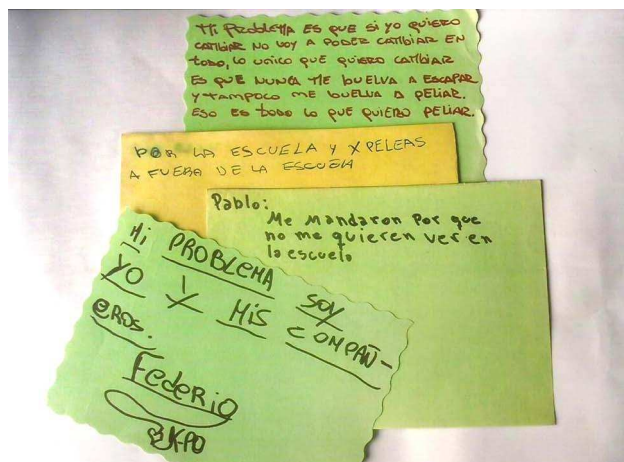 Mi PRoblEMA ES QUE Si YO QUiERO
CAMbiAR NO VOY A PODER CAMbiAR EN
todo, LO UNiCO QUE QUIERO CAMbiAR
ES QUE NUNCA ME bUElVA A ESCAPAR
Y tAMPOCO ME bUElVA A PEliAR.
ESO ES todo lo QUE QUIERO PEliAR.
POR LA ESCUELA Y X PELEAS
A FUERA DE LA ESCUELA
Pablo:
Me mandaron Por que
no me quieren ver en
la escuela
Mi PROBLEMA SOY
YO Y MiS COMPAÑ-
EROS.
FedeRiO